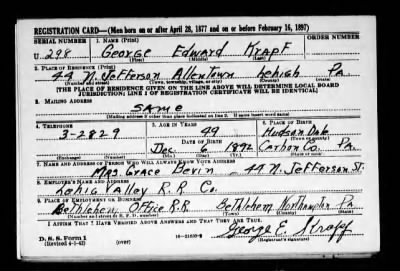 REGISTRATION CARD—(Men born on or after April 28, 1877 and on or before February 16, 1897)
SERIAL NUMBER 1. NAME (Print) ORDER NUMBER
U 298 George Edward Krapf
(First) (Middle) (Last)
2. PLACE OF RESIDENCE (Print)
44 N. Jefferson Allentown Lehigh Pa.
(Number and street) (Town, township, village, or city) (County) (State)
[THE PLACE OF RESIDENCE GIVEN ON THE LINE ABOVE WILL DETERMINE LOCAL BOARD
JURISDICTION; LINE 2 OF REGISTRATION CERTIFICATE WILL BE IDENTICAL]
3. MAILING ADDRESS
Same
[Mailing address if other than place indicated on line 2. If same insert word same]
4. TELEPHONE 5. AGE IN YEARS 6. PLACE OF BIRTH
3-2829 49 Hudson Dale
DATE OF BIRTH (Town or county)
Dec 6 1892 Carbon Co. Pa.
(Exchange) (Number) (Mo.) (Day) (Yr.) (State or country)
7. NAME AND ADDRESS OF PERSON WHO WILL ALWAYS KNOW YOUR ADDRESS
Mrs. Grace Devin 44 N. Jefferson St.
8. EMPLOYER'S NAME AND ADDRESS
Lehigh Valley R.R. Co.
9. PLACE OF EMPLOYMENT OR BUSINESS
Bethlehem Office R.R Bethlehem Northampton Pa.
(Number and street or R. F. D. number) (Town) (County) (State)
I AFFIRM THAT I HAVE VERIFIED ABOVE ANSWERS AND THAT THEY ARE TRUE.
George E. Krapf
D. S. S. Form 1
(Revised 4-1-42) (over) 16—21630-2 (Registrant's signature)